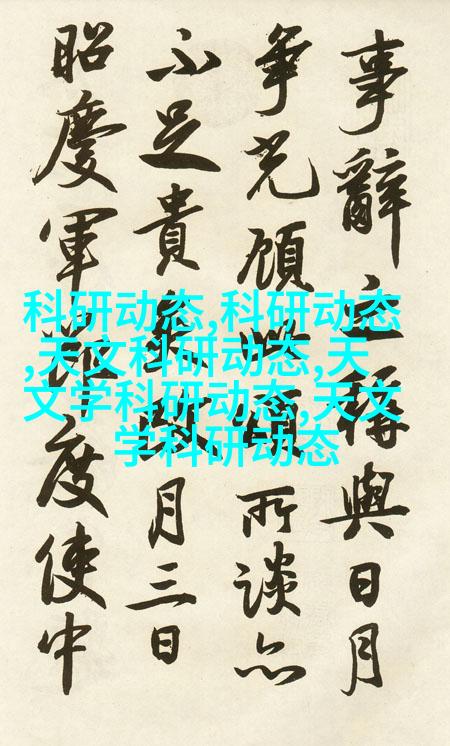 事辭稱與日月
爭光顧所談亦
不足貴月三日
昭慶軍節度使中
科研动态,科研动态
,天文科研动态,天
文学科研动态,天文
学科研动态